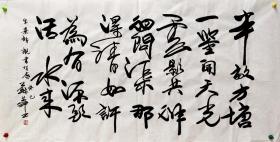 半畝方塘
一鑒開天光
雲影共徘
徊問渠那
得清如許
為有源頭
活水來
朱熹詩觀書有感